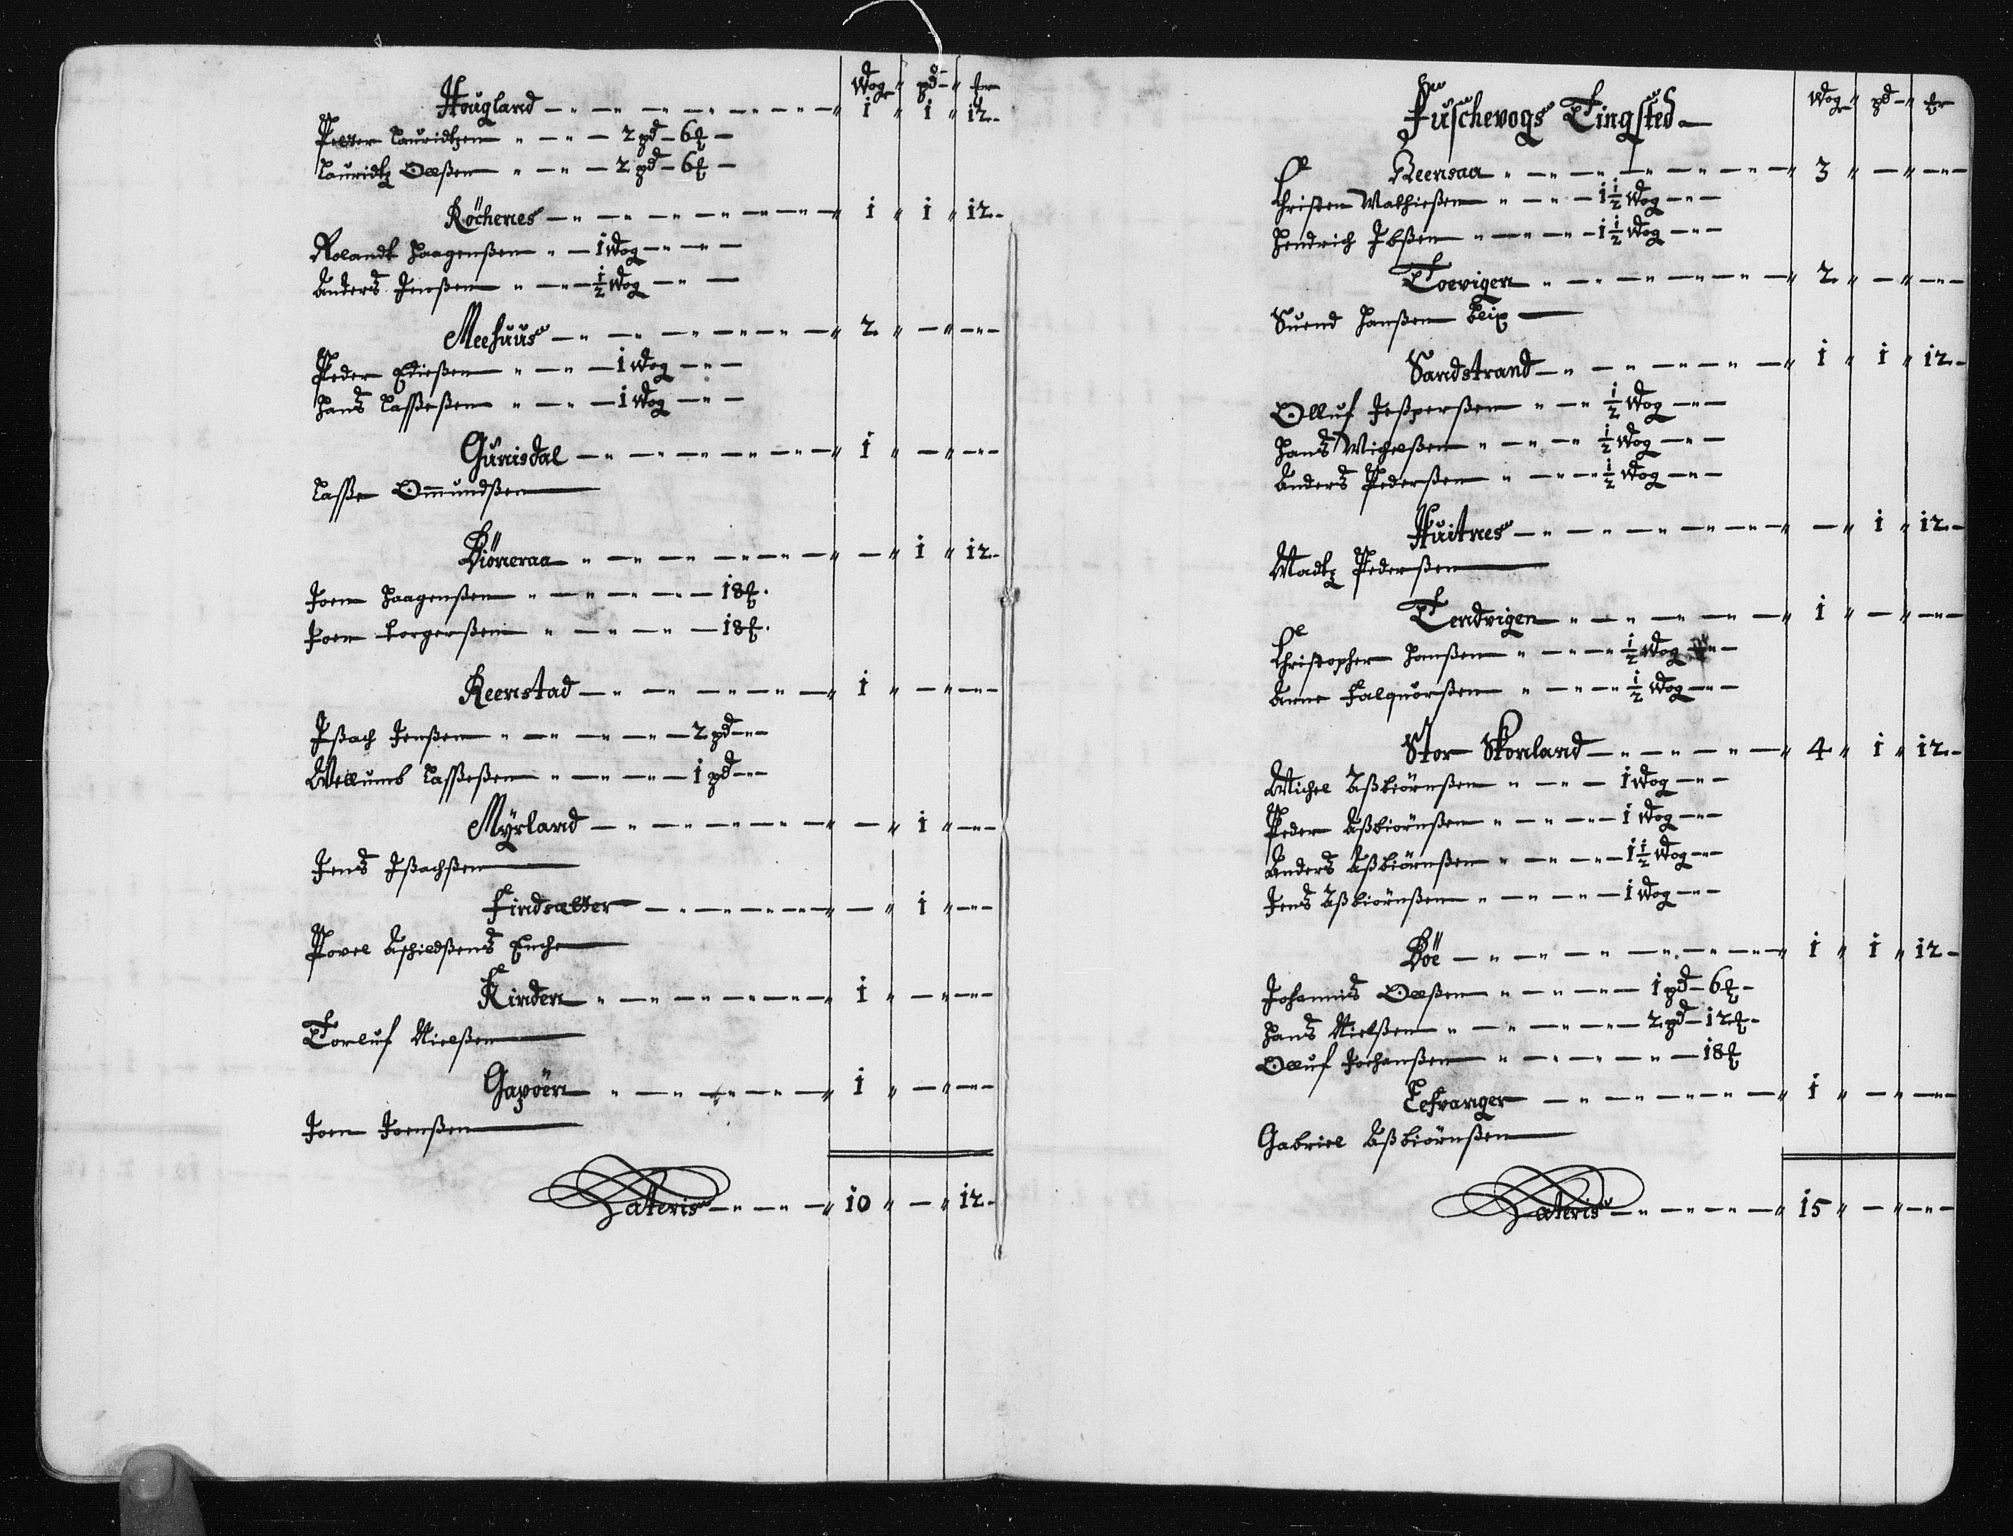 Wog pd ℔r
Hougland 1 1 12
Peder Lauridtzen 2 pd 6 ℔
Lauridtz Olleßen 2 pd 6 ℔
Röchenes 1 1 12
Rolandt Haagenßen 1 Wog
Anders Jenßen ½ Wog
Meehuus 2
Peder Edießen 1 Wog
Hans Lasseßen 1 Wog
Gunisdal 1
Lasse Ommundßen
Biöneraa 1 12
Joen Haagenßen 18 ℔
Joen Borgerßen 18 ℔
Reenstad 1
Jßach Jenßen 2 pd
Willumb Lasseßen 1 pd
Myrland 1
Jens Jßachßen
Findsætter 1
Povel Aschildßens Enche
Kinden 1
Torluf Nielßen
Gapöen 1
Joen Joenßen
Lateris 10 12
Fuschevogs Tingsted
Wog pd ℔r
Reensaa 3
Christen Mathießen 1½ Wog
Hendrich Jbßen 1½ Wog
Toevigen 2
Suend Hanßen Leix
Sandstrand 1 1 12
Olluf Jeßperßen ½ Wog
Hans Michelßen ½ Wog
Anders Pederßen ½ Wog
Huitnes 1 12
Madtz Pederßen
Tendvigen 1
Christopher Hanßen ½ Wog
Arne Falquorßen ½ Wog
Stor Skonland 4 1 12
Michel Aßbiörnßen 1 Wog
Peder Aßbiörnßen 1 Wog
Anders Aßbiörnßen 1½ Wog
Jens Aßbiörnßen 1 Wog
Böe 1 1 12
Johannis Olleßen 1 pd 6 ℔
Hans Nielßen 2 pd 12 ℔
Olluf Jochanßen 18 ℔
Lefvanger 1
Gabriel Aßbiörnßen
Lateris 15